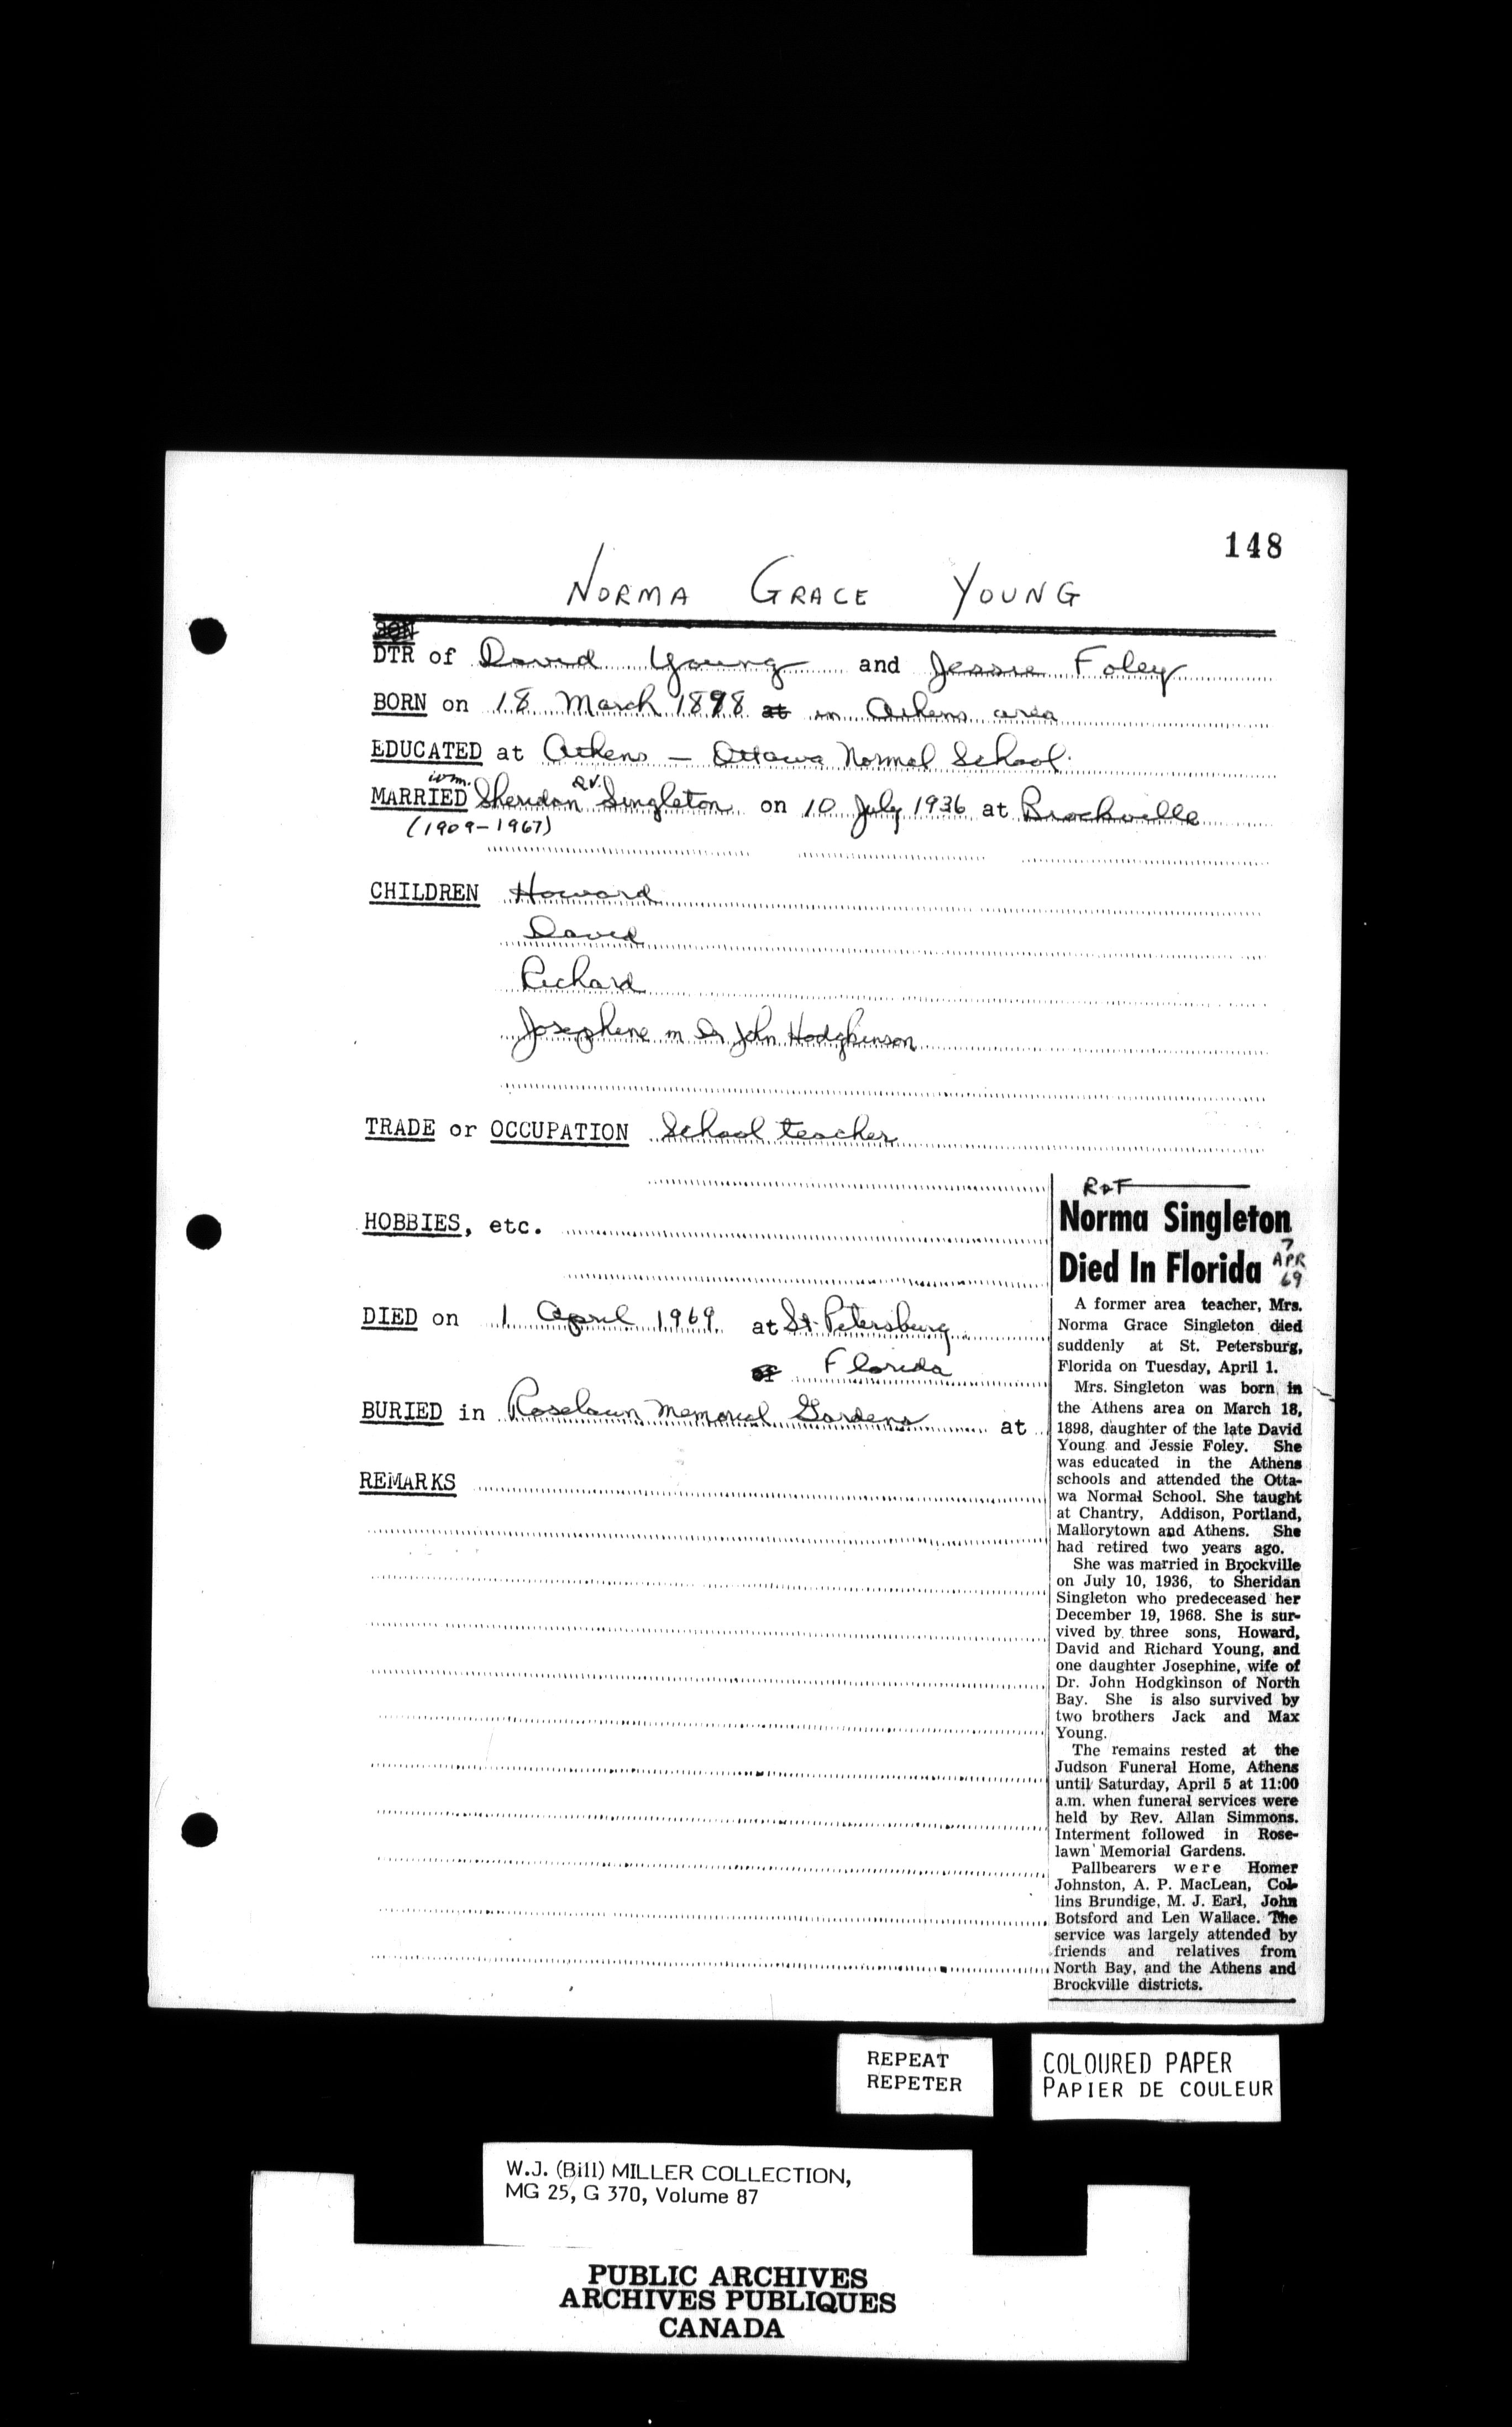 148
NORMA GRACE YOUNG
SON
DTR of David Young and Jessie Foley
BORN on 18 March 1898 at in Athens area
EDUCATED at Athens — Ottawa Normal School.
wm. R.V.
MARRIED Sheridan Singleton on 10 July 1936 at Brockville
(1909-1967)
CHILDREN Howard
David
Richard
Josephine m Dr John Hodgkinson
TRADE or OCCUPATION School teacher
HOBBIES, etc.
DIED on 1 April 1969 at St. Petersburg
of Florida
BURIED in Roselawn Memorial Gardens at
REMARKS
R&T
Norma Singleton
Died In Florida
7
APR
69
A former area teacher, Mrs.
Norma Grace Singleton died
suddenly at St. Petersburg,
Florida on Tuesday, April 1.
Mrs. Singleton was born in
the Athens area on March 18,
1898, daughter of the late David
Young and Jessie Foley. She
was educated in the Athens
schools and attended the Otta-
wa Normal School. She taught
at Chantry, Addison, Portland,
Mallorytown and Athens. She
had retired two years ago.
She was married in Brockville
on July 10, 1936, to Sheridan
Singleton who predeceased her
December 19, 1968. She is sur-
vived by three sons, Howard,
David and Richard Young, and
one daughter Josephine, wife of
Dr. John Hodgkinson of North
Bay. She is also survived by
two brothers Jack and Max
Young.
The remains rested at the
Judson Funeral Home, Athens
until Saturday, April 5 at 11:00
a.m. when funeral services were
held by Rev. Allan Simmons.
Interment followed in Rose-
lawn Memorial Gardens.
Pallbearers were Homer
Johnston, A. P. MacLean, Col-
lins Brundige, M. J. Earl, John
Botsford and Len Wallace. The
service was largely attended by
friends and relatives from
North Bay, and the Athens and
Brockville districts.
REPEAT
REPETER
COLOURED PAPER
PAPIER DE COULEUR
W.J. (Bill) MILLER COLLECTION,
MG 25, G 370, Volume 87
PUBLIC ARCHIVES
ARCHIVES PUBLIQUES
CANADA